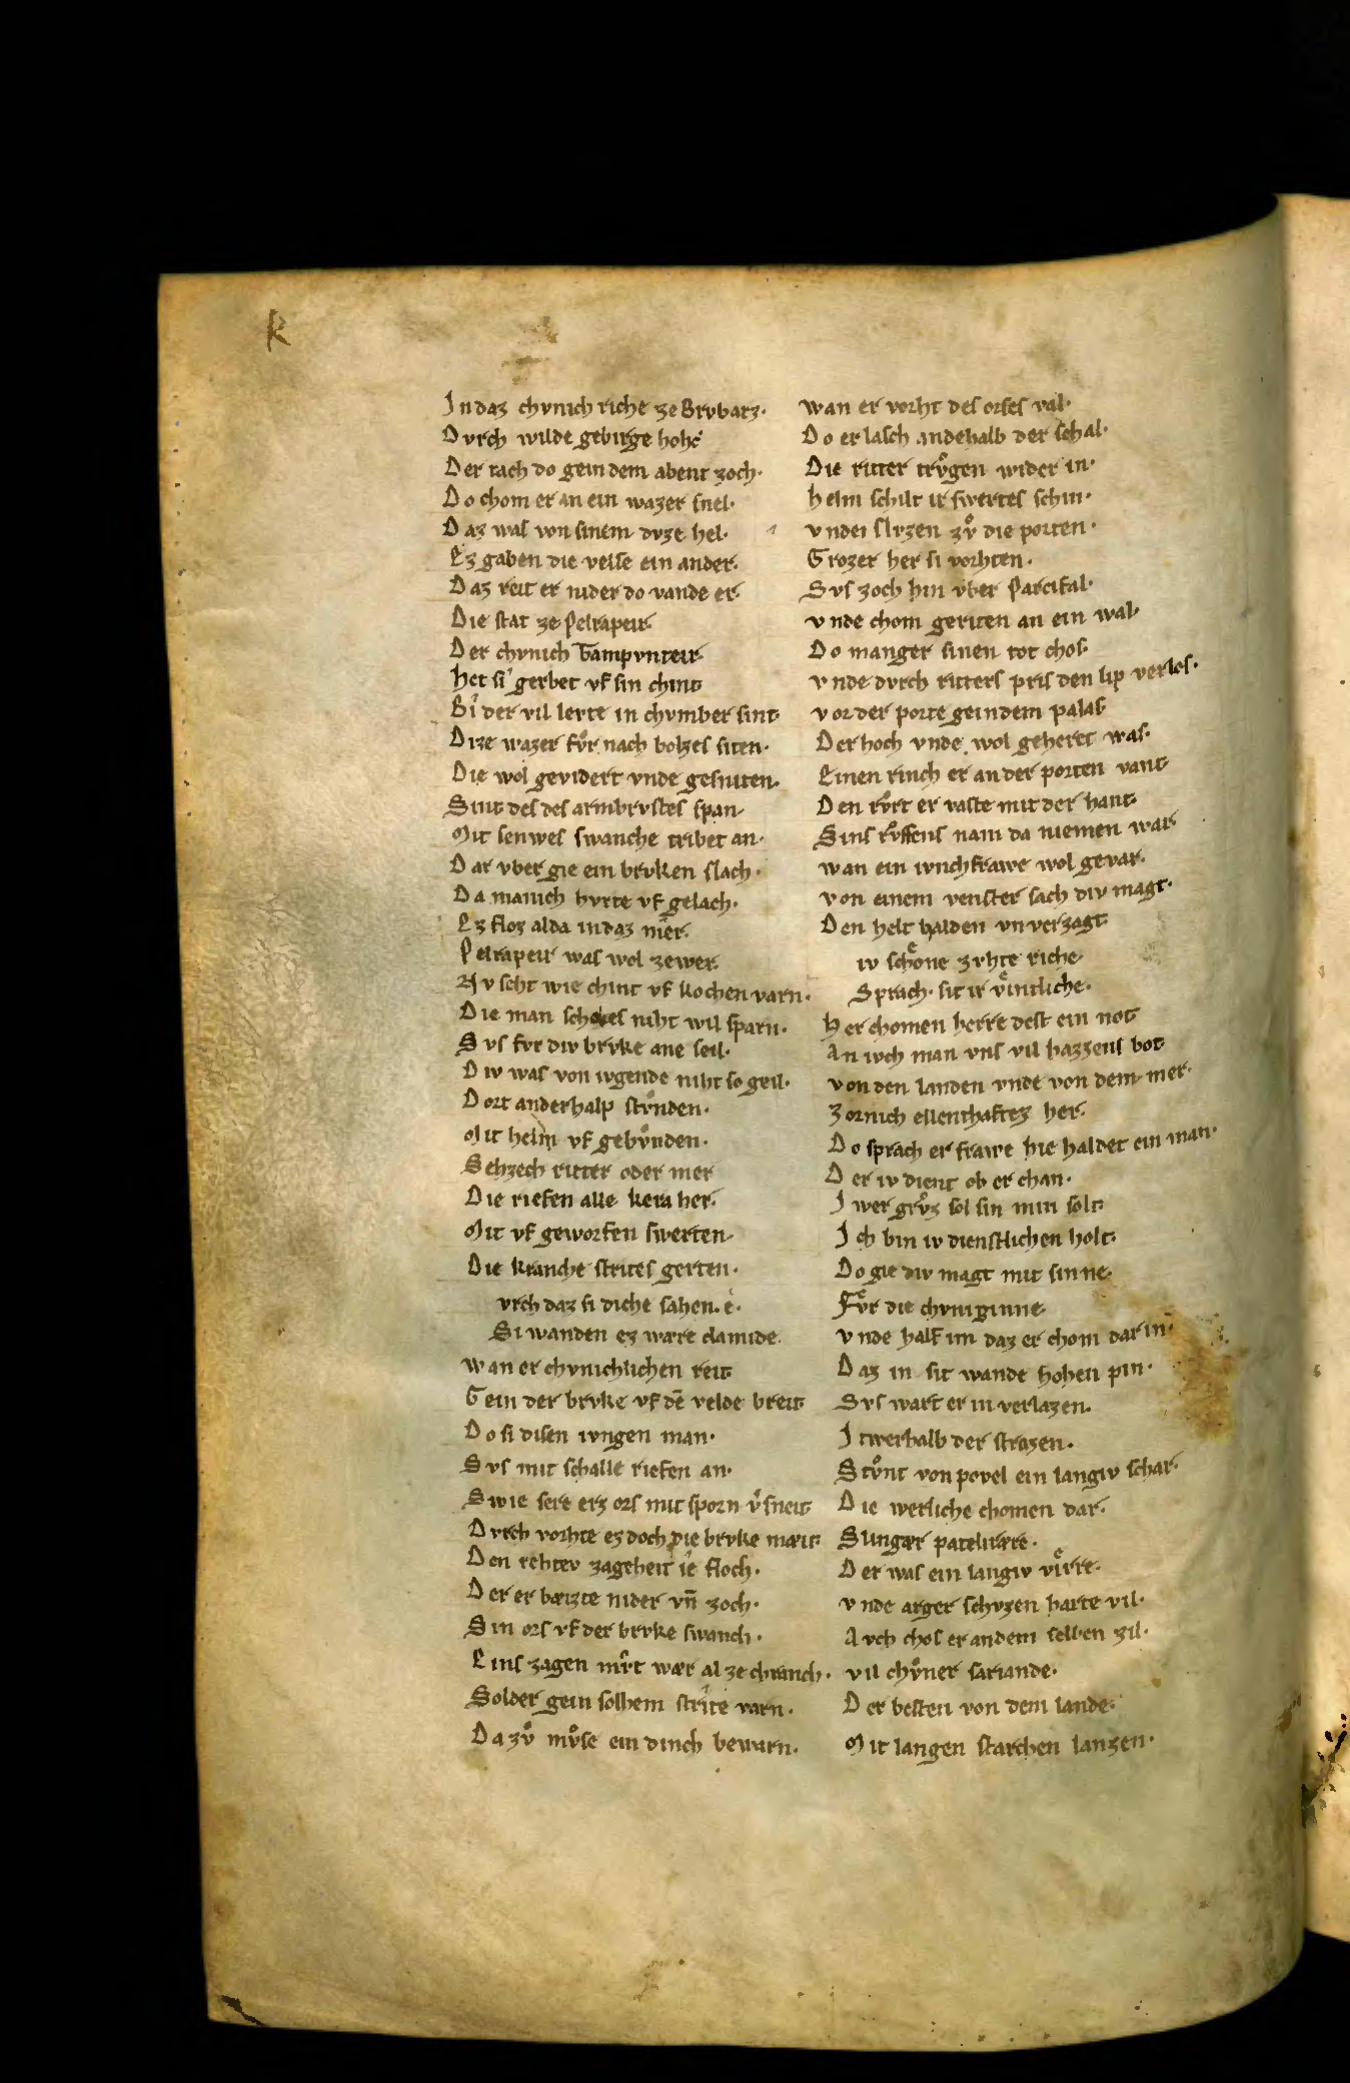 k
Jn daz chvnich riche ze Brvbarz·
Dvrch wilde gebirge hohe
Der tach do gein dem abent zoch·
Do chom er an ein wazer snel·
Daz was von sinem dvze hel·
Ez gaben die velse ein ander·
Daz reit er nider do vande er·
Die stat ze Pelrapeir·
Der chvnich Tampvnteir·
het si gerbet vf sin chint
Bi der vil levte in chvmber sint·
Dize wazer fvͦr nach bolzes siten·
Die wol gevidert vnde gesniten·
Sint des des armbrvstes span·
Mit senwes swanche tribet an·
Dar vber gie ein brvken slach·
Da manich hvrte vf gelach·
Ez floz alda in daz mer·
Pelrapeir was wol ze wer·
Nv seht wie chint vf kochen varn·
Die man schokes niht wil sparn·
Svs fvr div brvke ane seil·
Div was von ivgende niht so geil·
Dort anderhalp stvͦnden·
Mit helm vf gebvnden·
Sehzech ritter oder mer
Die riefen alle kera her·
Mit vf geworfen swerten
Die kranche strites gerten·
vrch daz si diche sahen. e·
Si wanden ez wære clamide
wan er chvnichlichen reit
Gein der brvke vf dē velde breit
Do si disen ivngen man·
Svs mit schalle riefen an·
Swie sere erz ors mit sporn v̾sneit
Dvrch vorhte ez doch die brvke mæit·
Den rehtev zageheit ie floch·
Der er bæizte nider vn̄ zoch·
Sin ors vf der brvke swanch·
Eins zagen mvͦt wær al ze chranch·
Solder gein solhem strite varn·
Da zvͦ mvͦse ein dinch bewarn·
wan er vorht des orses val·
Do er lasch andehalb der schal·
Die ritter trvͦgen wider in·
helm schilt ir swertes schin·
vndei slvzen zvͦ die porten·
Grozer her si vorhten·
Svs zoch hin vber Parcifal·
vnde chom geriten an ein wal·
Do manger sinen tot chos·
vnde dvrch ritters pris den lip verlos·
vor der porte gein dem palas
Der hoch vnde wol geheret was·
Einen rinch er an der porten vant
Den rvͦrt er vaste mit der hant·
Sins rvͦffens nam da niemen war
wan ein ivnchfrawe wol gevar·
von einem venster sach div magt·
Den helt halden vn verzagt
iv schoͤne zvhte riche
Sprach· sit ir vͤintliche·
her chomen herre dest ein not
An ivch man vns vil hazzens bot
von den landen vnde von dem mer·
Zornich ellenthaftez her·
Do sprach er frawe hie haldet ein man·
Der iv dient ob er chan·
Jwer grvͦz sol sin min solt
Jch bin iv dienstlichen holt·
Do gie div magt mit sinne·
Fvͤr die chvniginne
vnde half im daz er chom dar in·
Daz in sit wande hohen pin·
Svs wart er in verlazen.
Jtwerhalb der strazen·
Stvͦnt von povel ein langiv schar·
Die werliche chomen dar·
Slingær patelirære·
Der was ein langiv viͤrre·
vnde arger schvzen harte vil·
Avch chos er an dem selben zil·
vil chvͤner sariande·
Der besten von dem lande·
Mit langen starchen lanzen·